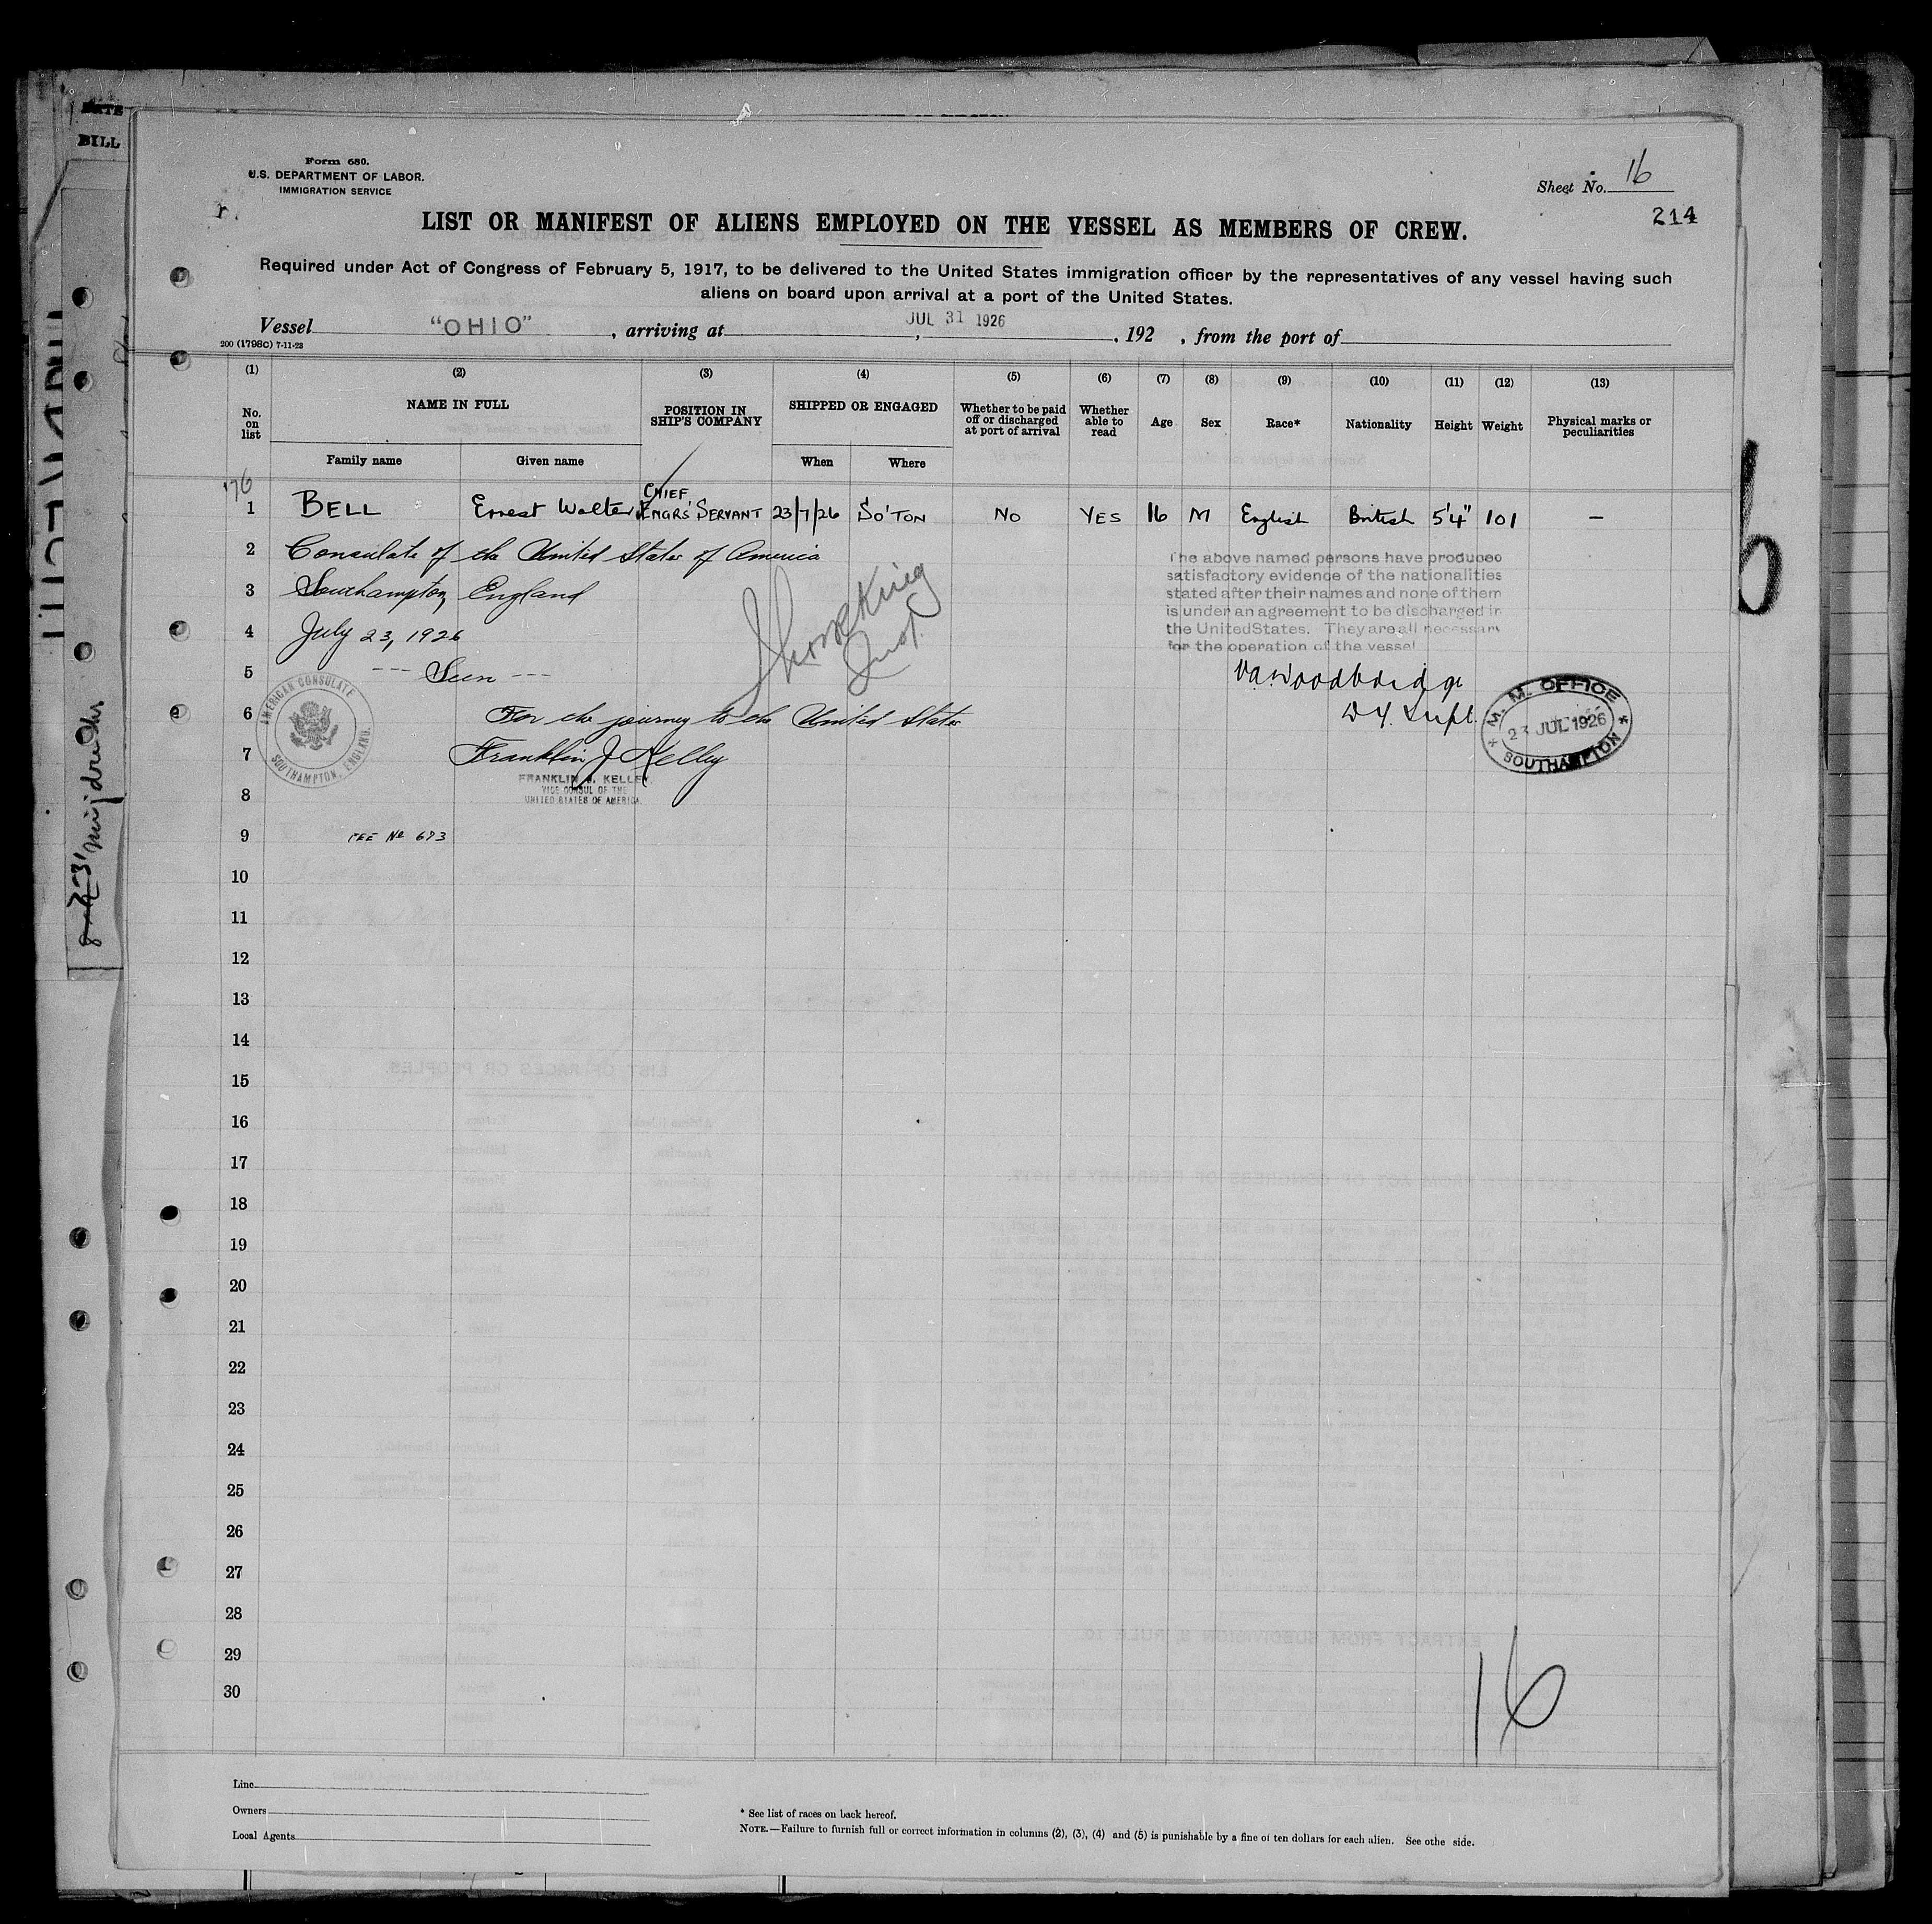 DATE
BILL
Form 680.
U.S. DEPARTMENT OF LABOR.
IMMIGRATION SERVICE
Sheet No. 16
214
LIST OR MANIFEST OF ALIENS EMPLOYED ON THE VESSEL AS MEMBERS OF CREW.
Required under Act of Congress of February 5, 1917, to be delivered to the United States immigration officer by the representatives of any vessel having such
aliens on board upon arrival at a port of the United States.
Vessel "OHIO", arriving at , JUL 31 1926 , 192 , from the port of
200 (1798C) 7-11-23
(1) (2) (3) (4) (5) (6) (7) (8) (9) (10) (11) (12) (13)
No. on list NAME IN FULL POSITION IN SHIP'S COMPANY SHIPPED OR ENGAGED Whether to be paid off or discharged at port of arrival Whether able to read Age Sex Race* Nationality Height Weight Physical marks or peculiarities
Family name Given name When Where
176
1 BELL Ernest Walter CHIEF ENGRS' SERVANT 23/7/26 SO'TON NO YES 16 M English British 5'4" 101 —
2 Consulate of the United States of America
The above named persons have produced
satisfactory evidence of the nationalities
3 Southampton, England
stated after their names and none of them
is under an agreement to be discharged in
4 July 23, 1926
the United States. They are all necessary
for the operation of the vessel
5 --- Seen ---
Woodbridge
6 For the journey to the United States
Dy. Supt.
M. M. OFFICE
23 JUL 1926
SOUTHAMPTON
AMERICAN CONSULATE
SOUTHAMPTON, ENGLAND.
7 Franklin J Kelley
FRANKLIN J. KELLEY
8 VICE CONSUL OF THE
UNITED STATES OF AMERICA.
9 FEE No 673
10
11
12
13
14
15
16
17
18
19
20
21
22
23
24
25
26
27
28
29
30
16
Line
Owners
Local Agents
* See list of races on back hereof.
NOTE.—Failure to furnish full or correct information in columns (2), (3), (4) and (5) is punishable by a fine of ten dollars for each alien. See othe side.